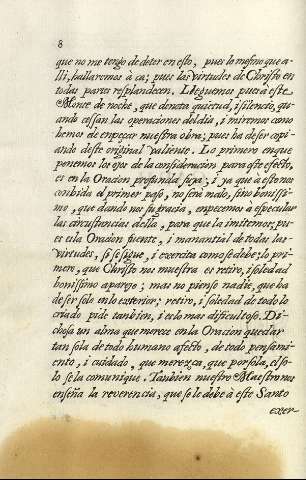 8
que no me tengo de deter en esto, pues lo mesmo que a-
lli, hallaremos à ca; pues las virtudes de Christo en
todas partes resplandecen. Lleguemos pues à este
Monte de noche, que denota quietud, i silencio, qu-
ando cessan las operaciones del dia, i miremos como
hemos de enpeçar nuestra obra; pues ha deser copi-
ando deste original valiente. Lo primero en que
ponemos los ojos de la consideracion para este efecto,
es en la Oracion profunda suya; i ya que à estonos
conbida el primer paso, no serà malo, sino bonissi-
mo, que dando nos su gracia, enpecemos à especular
las circustancias della, para que la imitemos; pu-
es es la Oracion fuente, i manantial de todas las
virtudes, si se sigue, i exercita como se debe; lo pri-
mero, que Christo nos muestra es retiro, i soledad
bonissimo aparejo; mas no piense nadie, que ha
de ser solo en lo exterior; retiro, i soledad de todo lo
criado pide tanbien, i es lo mas dificultoso. Di-
chosa un alma que merece en la Oracion quedar
tan sola de todo humano afecto, de todo pensami-
ento, i cuidado, que merezca, que por sola, el so-
lo se la comunique. Tanbien nuestro Maestro nos
enseña la reverencia, que se le debe à este Santo
exer-